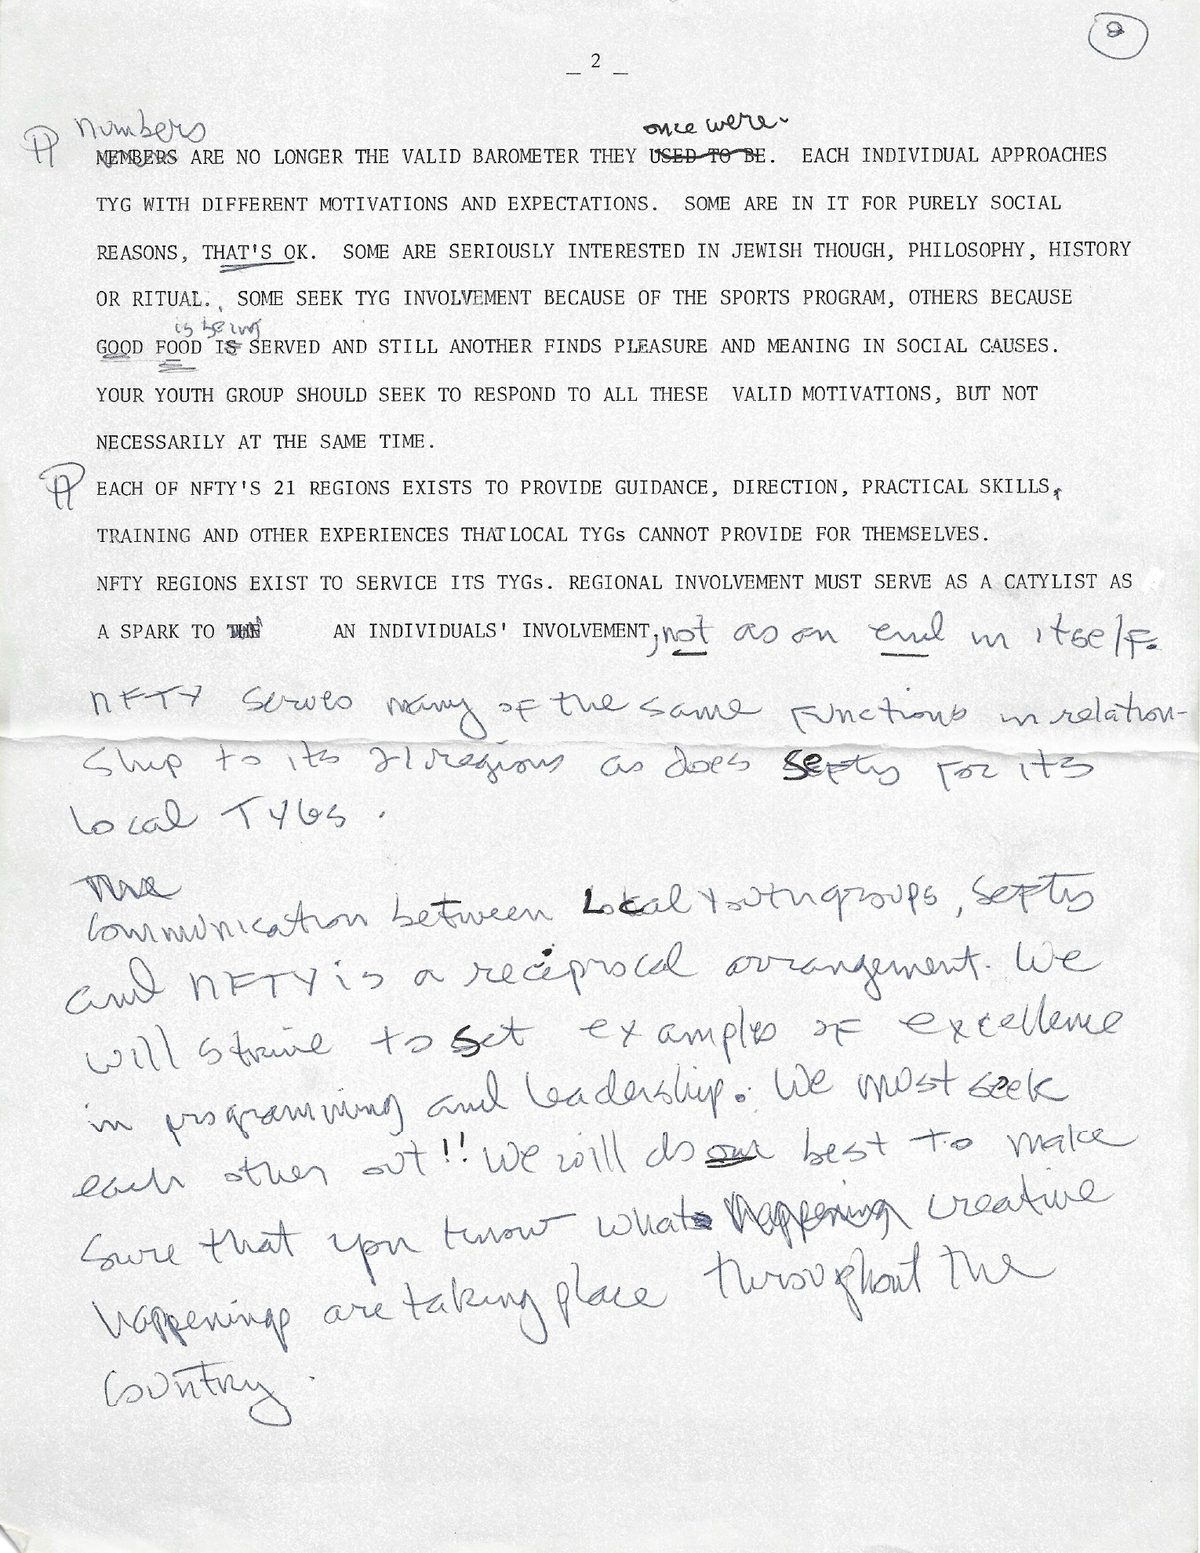 8
_ 2 _
numbers
once were
MEMBERS ARE NO LONGER THE VALID BAROMETER THEY USED TO BE. EACH INDIVIDUAL APPROACHES
TYG WITH DIFFERENT MOTIVATIONS AND EXPECTATIONS. SOME ARE IN IT FOR PURELY SOCIAL
REASONS, THAT'S OK. SOME ARE SERIOUSLY INTERESTED IN JEWISH THOUGH, PHILOSOPHY, HISTORY
OR RITUAL. SOME SEEK TYG INVOLVEMENT BECAUSE OF THE SPORTS PROGRAM, OTHERS BECAUSE
is being
GOOD FOOD IS SERVED AND STILL ANOTHER FINDS PLEASURE AND MEANING IN SOCIAL CAUSES.
YOUR YOUTH GROUP SHOULD SEEK TO RESPOND TO ALL THESE VALID MOTIVATIONS, BUT NOT
NECESSARILY AT THE SAME TIME.
EACH OF NFTY'S 21 REGIONS EXISTS TO PROVIDE GUIDANCE, DIRECTION, PRACTICAL SKILLS,
TRAINING AND OTHER EXPERIENCES THAT LOCAL TYGs CANNOT PROVIDE FOR THEMSELVES.
NFTY REGIONS EXIST TO SERVICE ITS TYGs. REGIONAL INVOLVEMENT MUST SERVE AS A CATYLIST AS
A SPARK TO AN INDIVIDUALS' INVOLVEMENT, not as an end in itself.
NFTY serves many of the same functions in relation-
ship to its 21 regions as does Sefty for its
local TYGs.
The
Communication between Local Youth groups, Sefty
and NFTY is a reciprocal arrangement. We
will strive to set examples of excellence
in programming and leadership. We must seek
each other out!! We will do our best to make
sure that you know what happening creative
happenings are taking place throughout the
country.